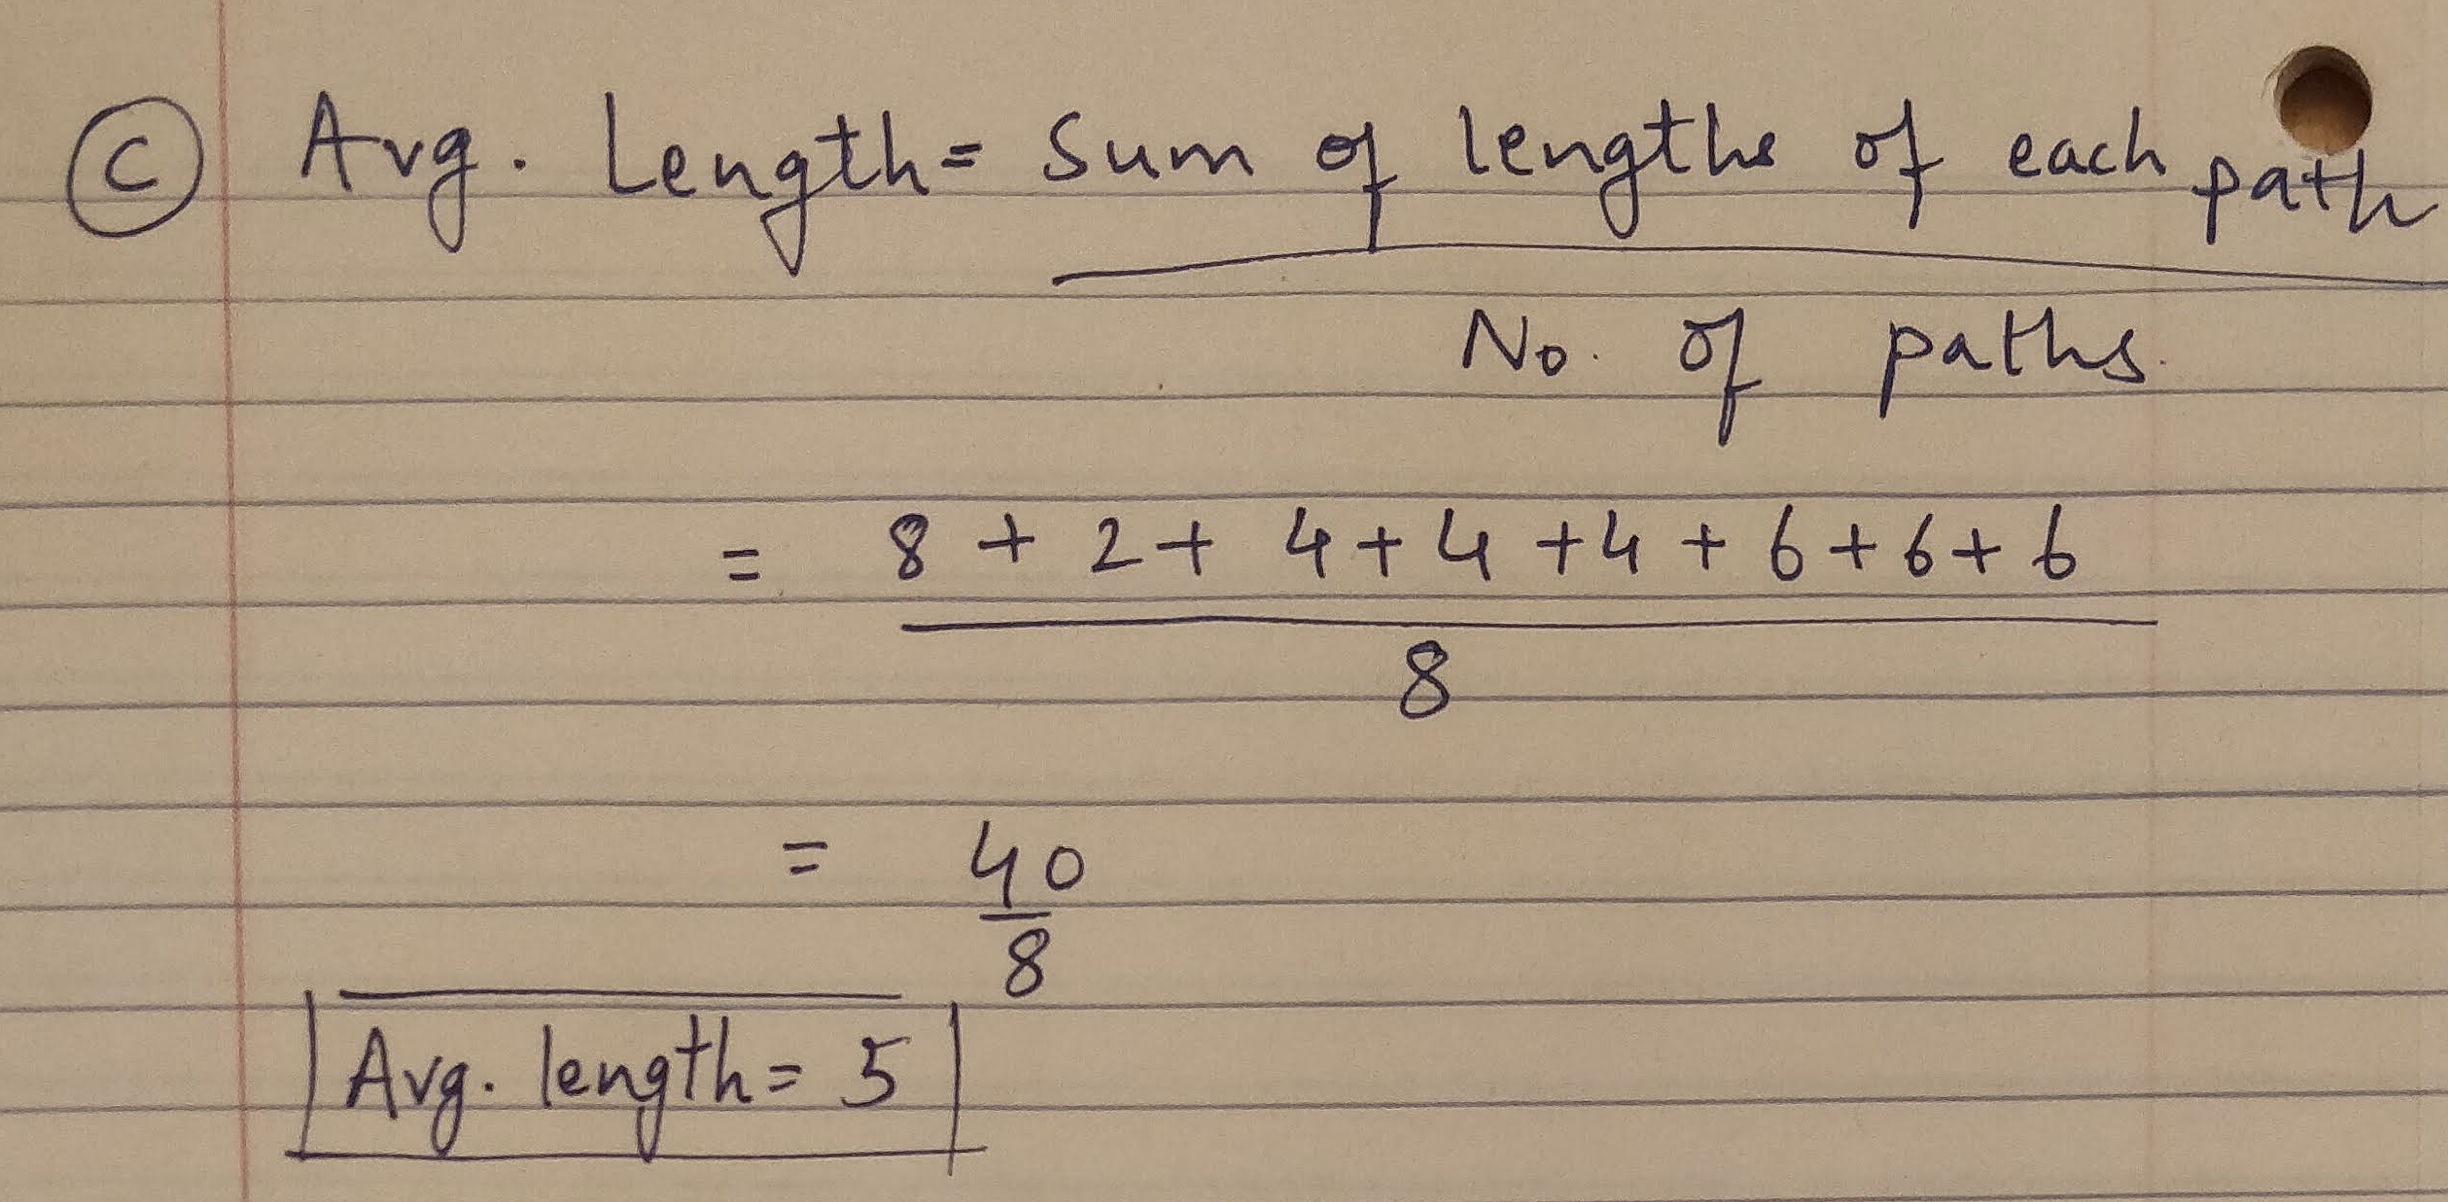 C Avg. Length = Sum of lengths of each path
No. of paths.
= 8 + 2 + 4 + 4 + 4 + 6 + 6 + 6
8
= 40
8
Avg. length = 5